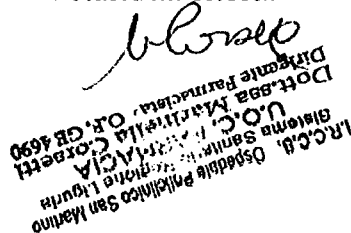 I.R.C.C.S. Ospedale Policlinico San Martino
Sistema Sanitario Regione Liguria
U.O.C. FARMACIA
Dott.ssa
Dirigente Farmacista, O.F. GE 4690